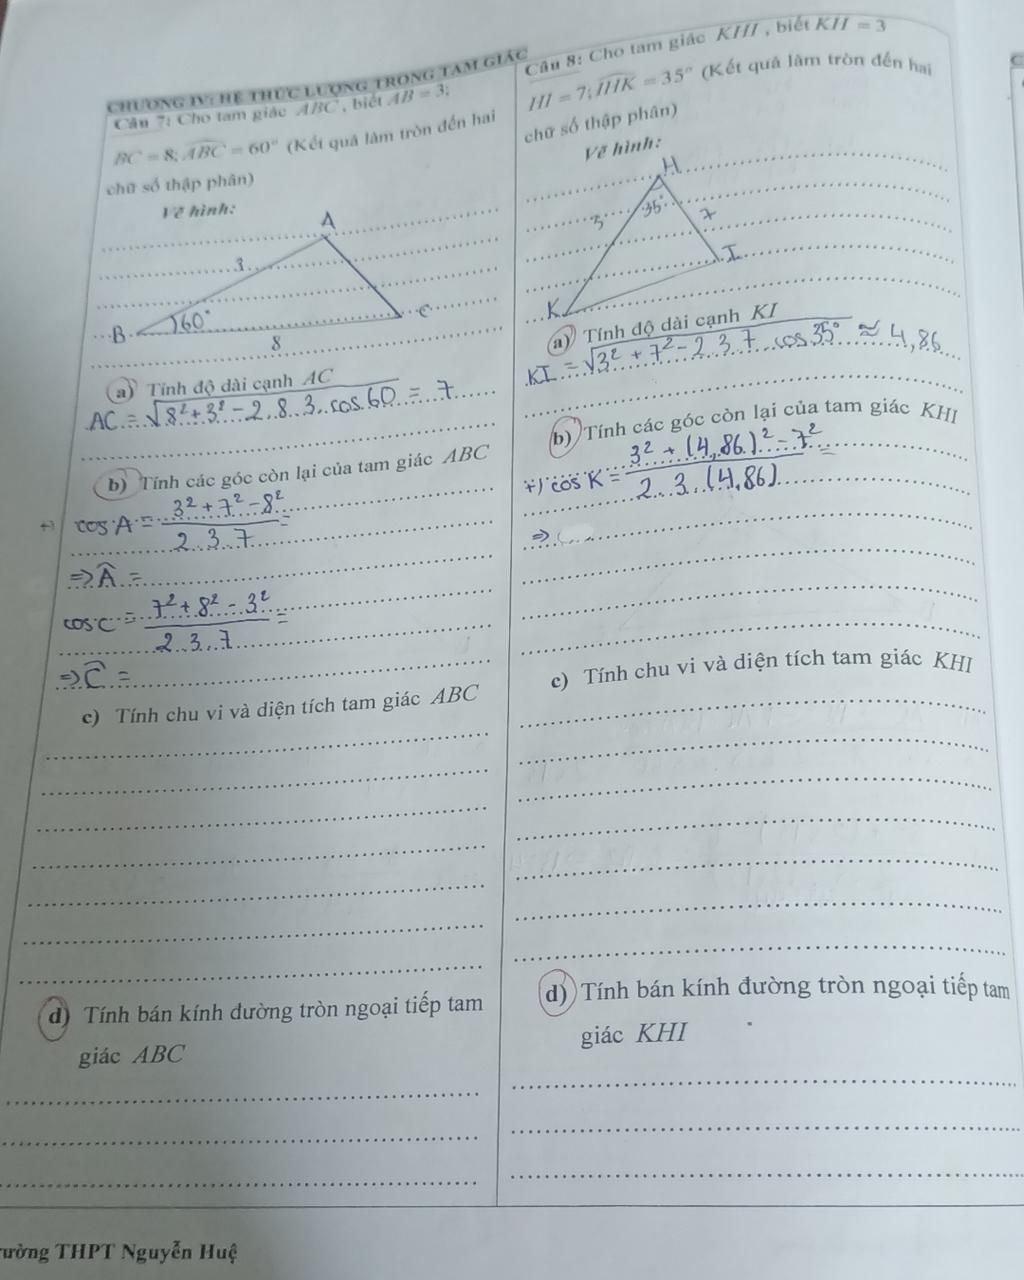 CHƯƠNG IV: HỆ THỨC LƯỢNG TRONG TAM GIÁC
Câu 7: Cho tam giác ABC, biết AB = 3;
BC = 8; ABC = 60° (Kết quả làm tròn đến hai
chữ số thập phân)
Vẽ hình:
A
3
B 60° C
8
a) Tính độ dài cạnh AC
AC = √8² + 3² - 2.8.3.cos.60 = 7
b) Tính các góc còn lại của tam giác ABC
+) cos A = 3² + 7² - 8² =
2.3.7
=> Â =
cos C = 7² + 8² - 3² =
2.3.7
=> Ĉ =
c) Tính chu vi và diện tích tam giác ABC
d) Tính bán kính đường tròn ngoại tiếp tam
giác ABC
Câu 8: Cho tam giác KHI, biết KH = 3
HI = 7; IHK = 35° (Kết quả làm tròn đến hai
chữ số thập phân)
Vẽ hình:
H
3 35° 7
I
K
a) Tính độ dài cạnh KI
KI = √3² + 7² - 2.3.7.cos 35° ≈ 4,86
b) Tính các góc còn lại của tam giác KHI
+) cos K = 3² + (4,86)² - 7² =
2.3.(4,86)
=>
c) Tính chu vi và diện tích tam giác KHI
d) Tính bán kính đường tròn ngoại tiếp tam
giác KHI
rường THPT Nguyễn Huệ